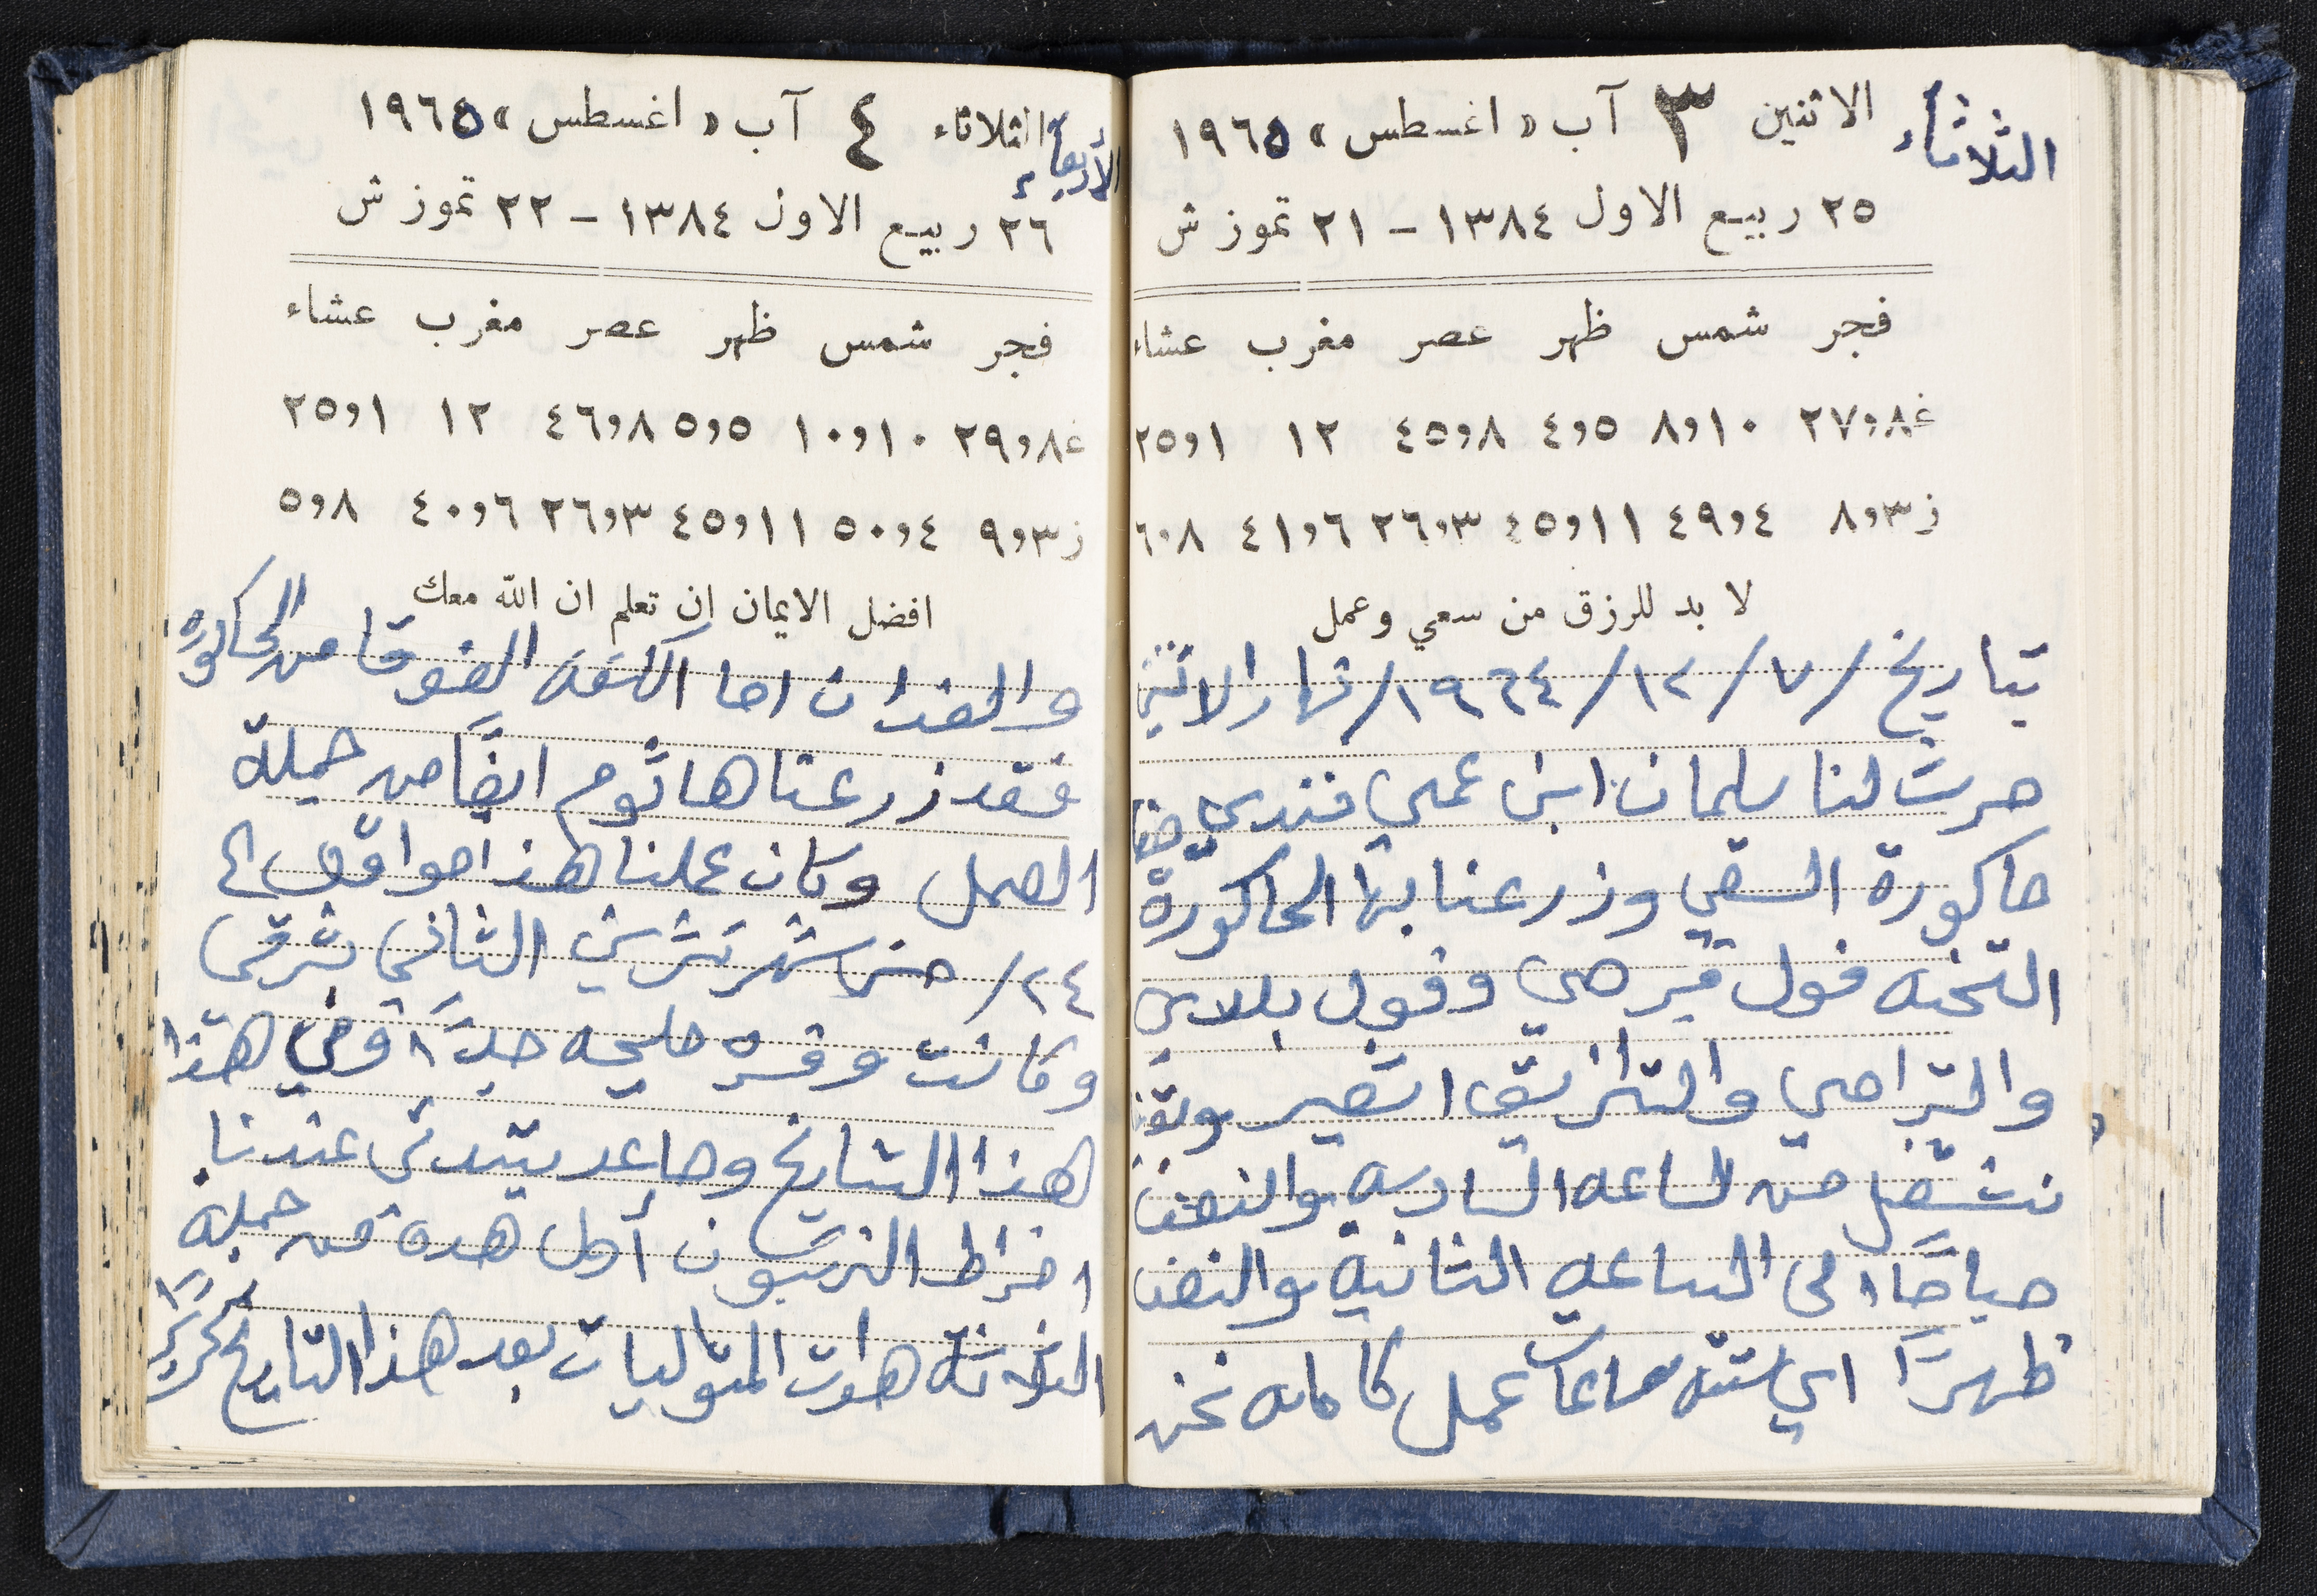 الثلاثاء الاثنين ٣ آب « اغسطس » ١٩٦٥
٢٥ ربيع الاول ١٣٨٤ - ٢١ تموز ش
فجر شمس ظهر عصر مغرب عشاء
غ ٨و٢٧ ١٠و٨ ٥و٤ ٨و٤٥ ١٢ ١و٢٥
ز ٣و٨ ٤و٤٩ ١١و٤٥ ٣و٢٦ ٦و٤١ ٨و٦
لا بد للرزق من سعي وعمل
بتاريخ /٧/١٢/١٩٦٤/ نهار الاثنين
حرث لنا سلمان ابن عمي فندي
حاكورة السقي وزرعنا بها الحاكورة
التحته فول قبرصي وفول بلادي
والتراحي والتلازيق
نشتغل من الساعه السادسه والنصف
صباحًا الى الساعه الثانية والنصف
ظهرًا اي ستة ساعات عمل كامله نحن
الأربعاء الثلاثاء ٤ آب « اغسطس » ١٩٦٥
٢٦ ربيع الاول ١٣٨٤ - ٢٢ تموز ش
فجر شمس ظهر عصر مغرب عشاء
غ ٨و٢٩ ١٠و١٠ ٥و٥ ٨و٤٦ ١٢ ١و٢٥
ز ٣و٩ ٤و٥٠ ١١و٤٥ ٣و٢٦ ٦و٤٠ ٨و٥
افضل الايمان ان تعلم ان الله معك
والفدان اما الفوقا من الحاكوره
فقد زرعناها ثوم ايضًا من جملة
العمل وكان عملنا هذا موافق الى
٢٤/ من شهر تشرين الثاني شرقي
وكانت وقره مليحه جدًا وفي هذا
هذا التاريخ وصاعد يبتدئ عندنا
افراط الزيتون أول هده من جملة
الثلاثة هدات المتواليات بعد هذا التاريخ تحريرًا